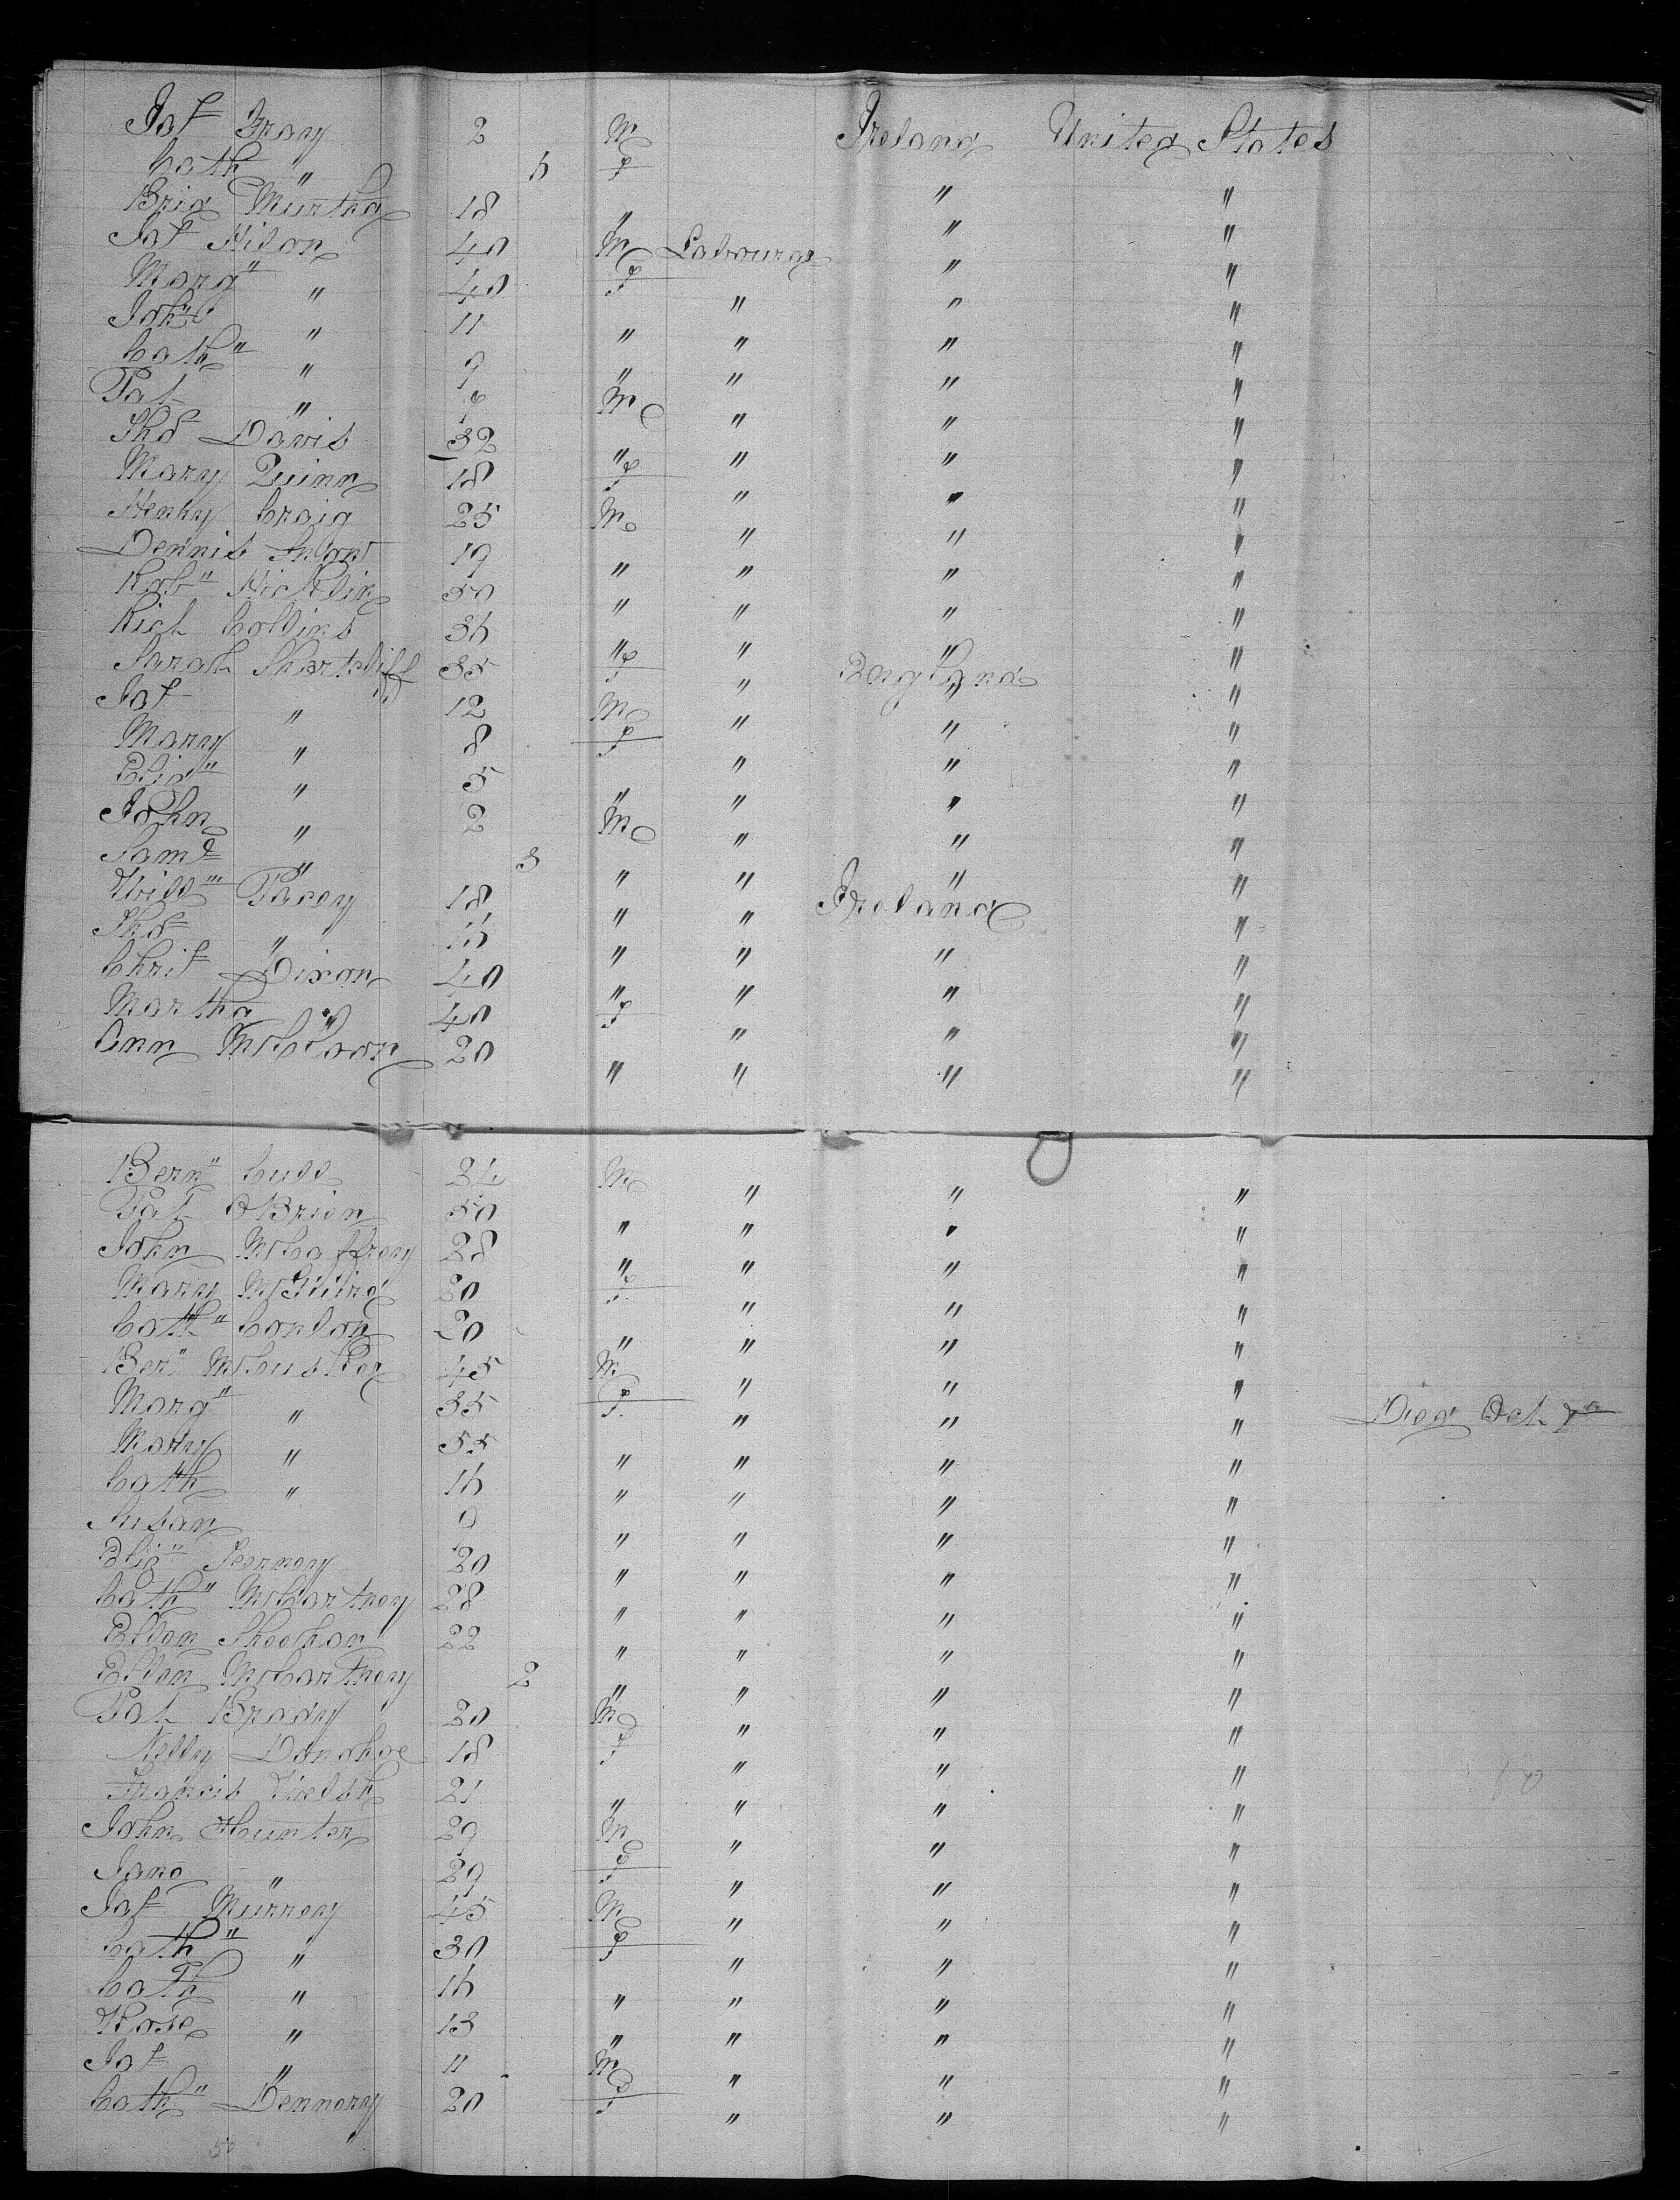 Jaˢ Gray 2 M Ireland United States
Cath " 6 F " "
Brid Murtha 18 " " "
Jaˢ Nilon 40 M Labourer " "
Margᵗ " 40 F " " "
John " 11 " " " "
Cathⁿ " 9 " " " "
Pat " 9 M " " "
Thoˢ Davis 32 " " " "
Mary Quinn 18 F " " "
Henry Craig 25 M " " "
Dennis 19 " " " "
Robᵗ Nicklin 50 " " " "
Rich Collins 36 " " " "
Sarah Shirtcliff 35 F " England "
Jaˢ " 12 M " " "
Mary " 8 F " " "
Elizᵗʰ " 5 " " " "
John " 2 M " " "
Samˡ " 3 " " " "
Willᵐ Pacey 18 " " Ireland "
Thoˢ " 16 " " " "
Chriˢ Dixon 40 " " " "
Martha " 40 F " " "
Ann 20 " " " "
Bernᵈ Cull 24 M " " "
Pat OBrien 50 " " " "
John McCaffrey 28 " " " "
Mary McGuire 20 F " " "
Cathⁿ Conlon 20 " " " "
Berᵈ McCuskee 45 M " " "
Margᵗ " 35 F " " " Died Oct
Mary " 55 " " " "
Cath " 16 " " " "
Susan 9 " " " "
Elizᵗʰ 20 " " " "
Cathⁿ McCartney 28 " " " "
Ellen Sheehan 22 " " " "
Ellen McCartney 2 " " " "
Pat Brady 20 M " " "
Kelly Donohoe 18 F " " "
Francis Welsh 21 " " " "
John Hunter 29 M " " "
Jane " 29 F " " "
Jaˢ Murray 45 M " " "
Cathⁿ " 30 F " " "
Cath " 16 " " " "
Rose " 13 " " " "
Jaˢ " 11 M " " "
Cathⁿ Dennery 20 F " " "
50